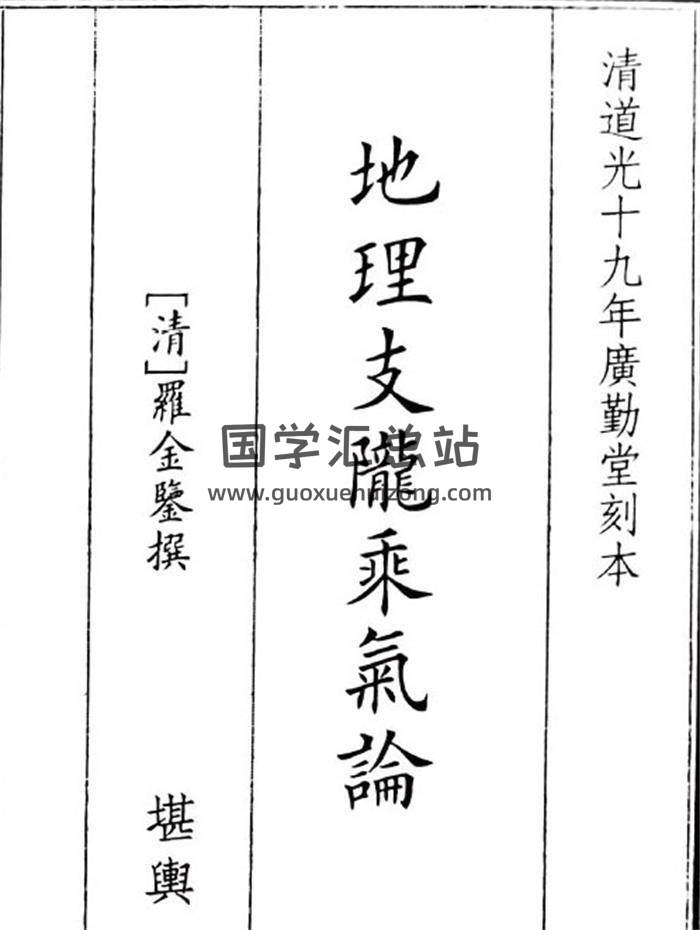 清道光十九年廣勤堂刻本
地理支隴乘氣論
[清]羅金鑒撰
堪輿
国学汇总站
www.guoxuehuizong.com